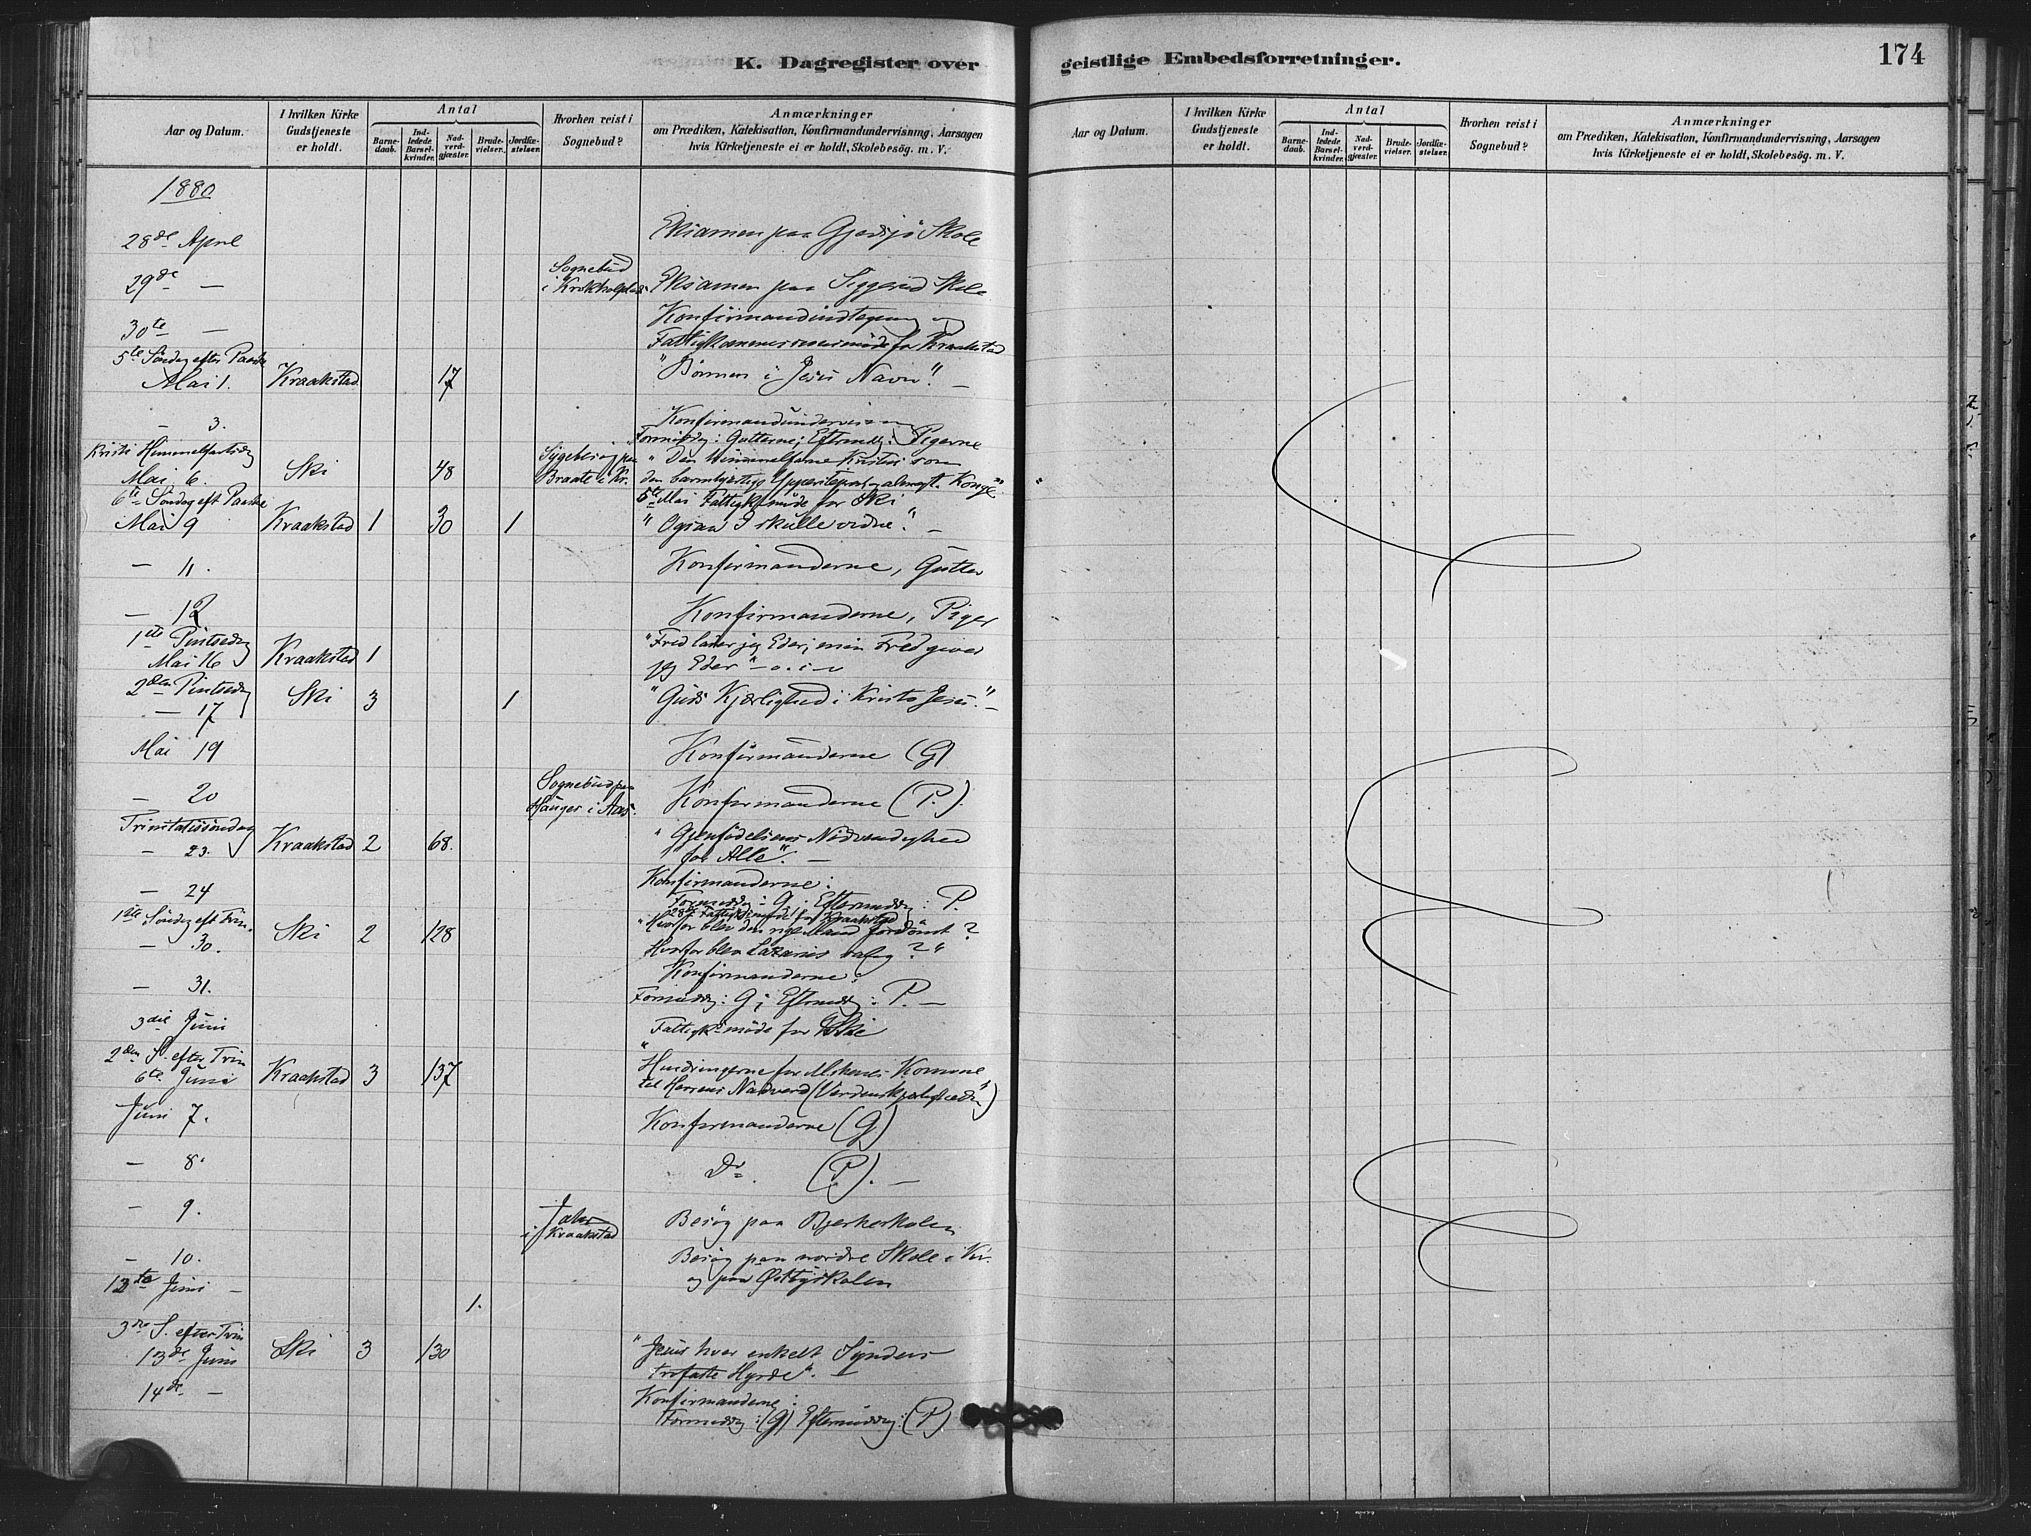 K. Dagregister over geistlige Embedsforretninger.
174
Aar og Datum.
I hvilken Kirke Gudstjeneste er holdt.
Antal
Barnedaab.
Indledede Barselkvinder.
Nadverdgjæster.
Brudevielser.
Jordfæstelser.
Hvorhen reist i Sognebud?
Anmærkninger
om Prædiken, Katekisation, Konfirmandundervisning, Aarsagen
hvis Kirketjeneste ei er holdt, Skolebesög. m. V.
Aar og Datum.
I hvilken Kirke Gudstjeneste er holdt.
Antal
Barnedaab.
Indledede Barselkvinder.
Nadverdgjæster.
Brudevielser.
Jordfæstelser.
Hvorhen reist i Sognebud?
Anmærkninger
om Prædiken, Katekisation, Konfirmandundervisning, Aarsagen
hvis Kirketjeneste ei er holdt, Skolebesög. m. V.
1880
28de April Eksamen paa Skole
29de — Sognebud i Eksamen paa Siggerud Skole
30te — Konfirmandindtegning og
Fattigkommissionsmøde for Kraakstad
5te Søndag efter Paaske
Mai 1. Kraakstad 17 "Bønnen i Jesu Navn". —
— 3. Konfirmandundervisning
Formiddg: Gutterne; Eftermdg: Pigerne
Kristi Himmelfartsdg
Mai 6. Ski 48 Sygebesøg paa Braate i Kr. "Den Himmelfarne Kristus som
den barmhjertige Ypperstepræst og almægt. Konge"
6te Søndag eft Paaske 5te Mai Fattigk.møde for Ski
Mai 9 Kraakstad 1 30 1 "Ogsaa I skulle vidne". —
— 11. Konfirmanderne, Gutter
— 12 Konfirmanderne, Piger
1ste Pintsedg
Mai 16 Kraakstad 1 "Fred lader jeg Eder; min Fred giver
jeg Eder" — o. s. v
2den Pintsedg
— 17 Ski 3 1 "Guds Kjærlighed i Kristo Jesu". —
Mai 19 Konfirmanderne (G)
— 20 Sognebud paa Hauger i Aas. Konfirmanderne (P.).
Trinitatissøndag
— 23. Kraakstad 2 68. "Gjenfødelsens Nødvendighed
for Alle". —
— 24 Konfirmanderne:
Formiddg: G; Eftermiddg: P.
28de Fattigk.møde for Kraakstad
1ste Søndag eft Trin.
— 30. Ski 2 128 "Hvorfor blev den rige Mand fordømt?
Hvorfor blev Lazarus salig?"
— 31. Konfirmanderne:
Formiddg: G; Eftermddg: P. —
3die Juni Fattigk.møde for Ski
2den S. efter Trin
6te Juni Kraakstad 3 137 "Hindringerne for Komme
til Herrens Nadverd (Verdenskjærligheden")
Juni 7. Konfirmanderne (G)
— 8. Do. (P). —
— 9. i Kraakstad Besøg paa Bjerkeskolen
— 10. Besøg paa nordre Skole i Kr.
og paa Østbyskolen
12te Juni — 1.
3die S. efter Trin
13de Juni Ski 3 130 "Jesus hver enkelt Synders
trofaste Hyrde". —
14de — Konfirmanderne:
Formiddg: (G) Eftermiddg: (P)